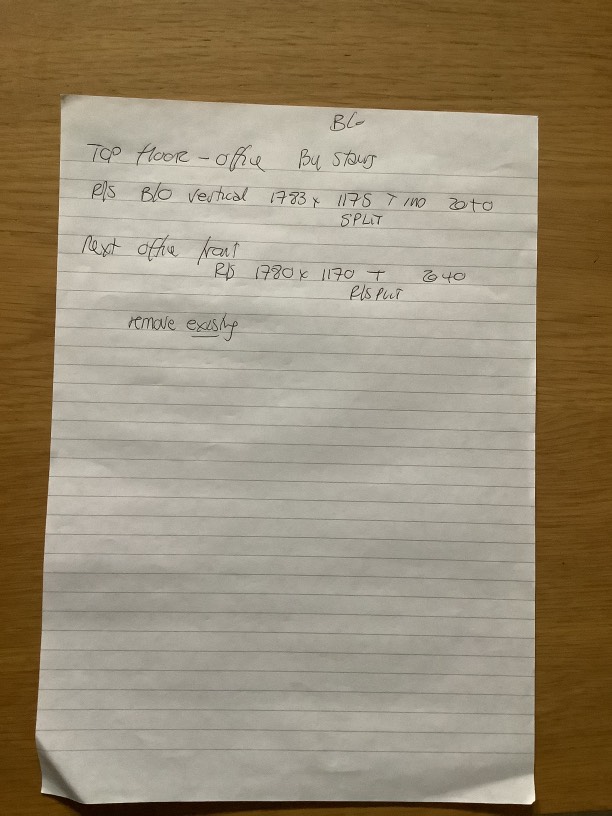 TOP floor - office By stairs
R/S B/O vertical 1783 x 1175 T 2040
SPLIT
Next office front
R/S 1780 x 1170 T 2040
R/SPLIT
remove existing